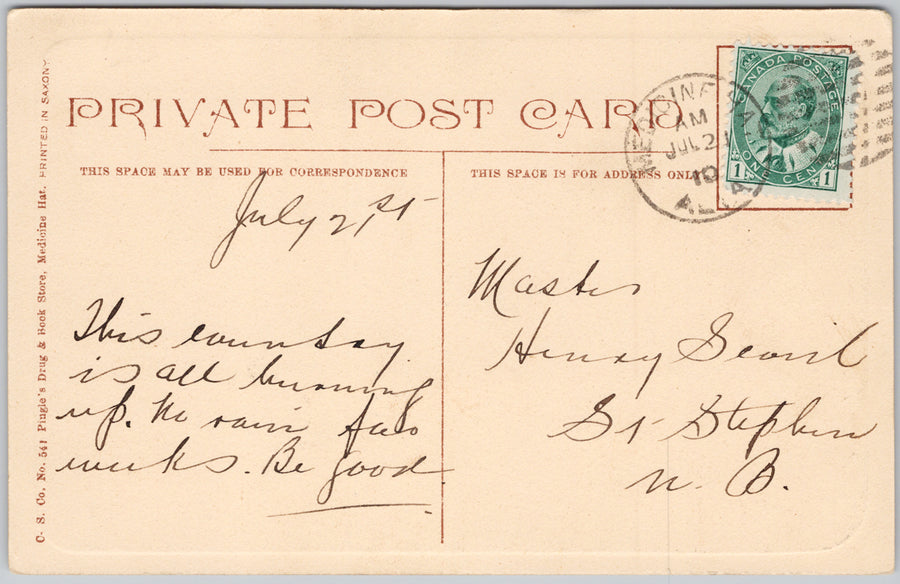 PRIVATE POST CARD
THIS SPACE MAY BE USED FOR CORRESPONDENCE
THIS SPACE IS FOR ADDRESS ONLY
C. S. Co. No. 541 Pingle's Drug & Book Store, Medicine Hat. PRINTED IN SAXONY
MEDICINE HAT
AM
JUL 21
10
ALTA
CANADA POSTAGE
1 ONE CENT 1
July 21st
This country
is all burning
up. No rain for
weeks. Be good
Master
Henry
St Stephen
N. B.